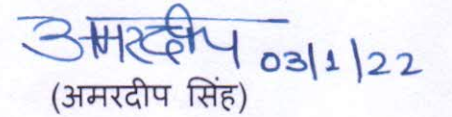 अमरदीप 03/1/22
(अमरदीप सिंह)